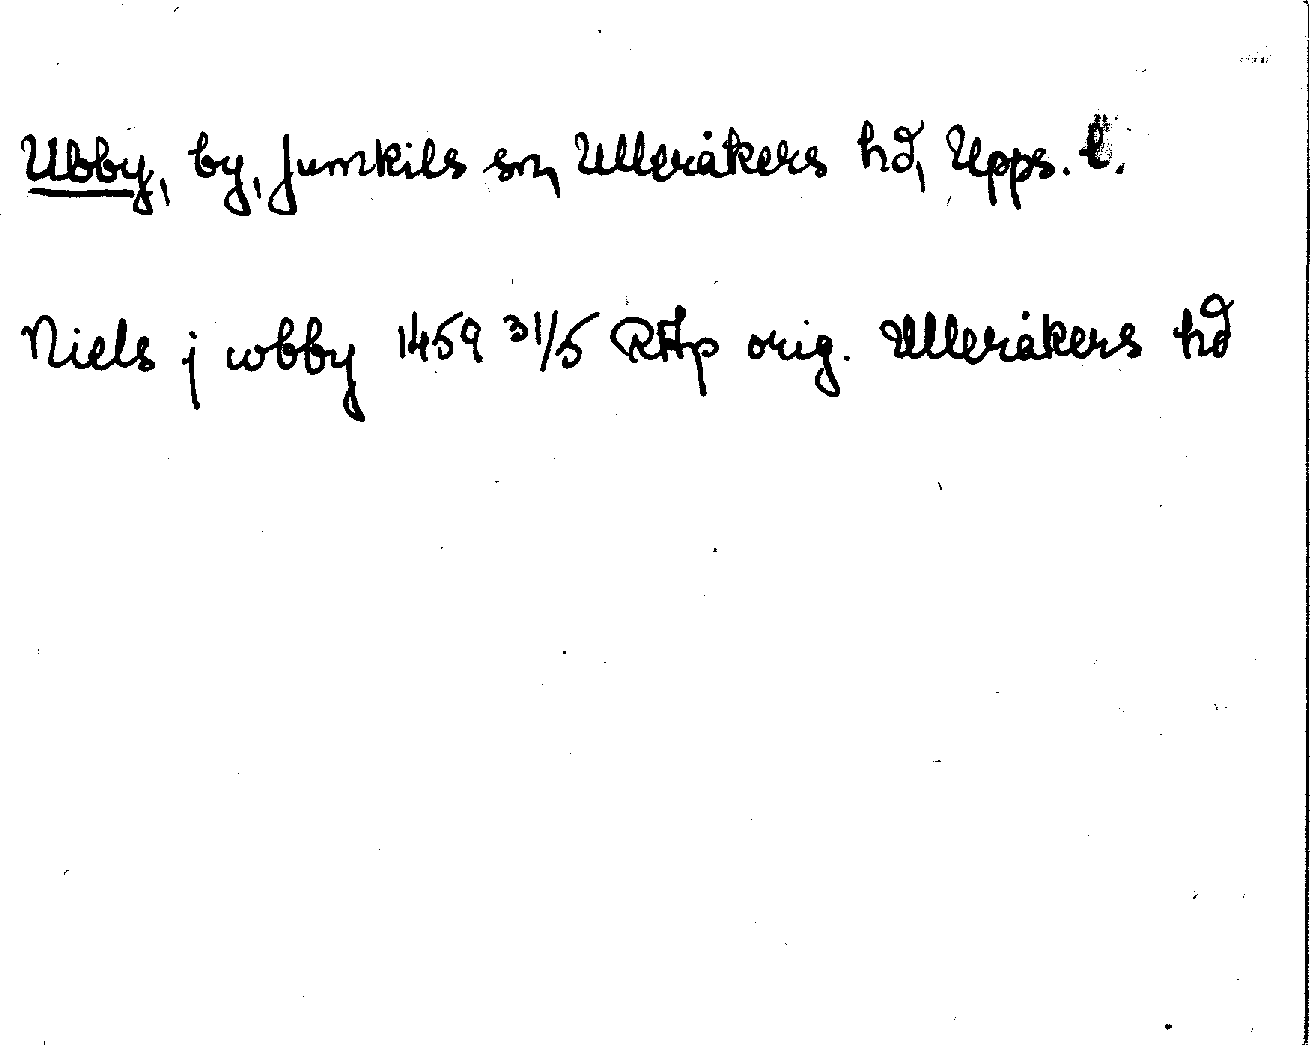 Ubby, by, Jumkils sn, Ulleråkers hd, Upps. l.
Niels j wbby 1459 31/5 RAp orig. Ulleråkers hd